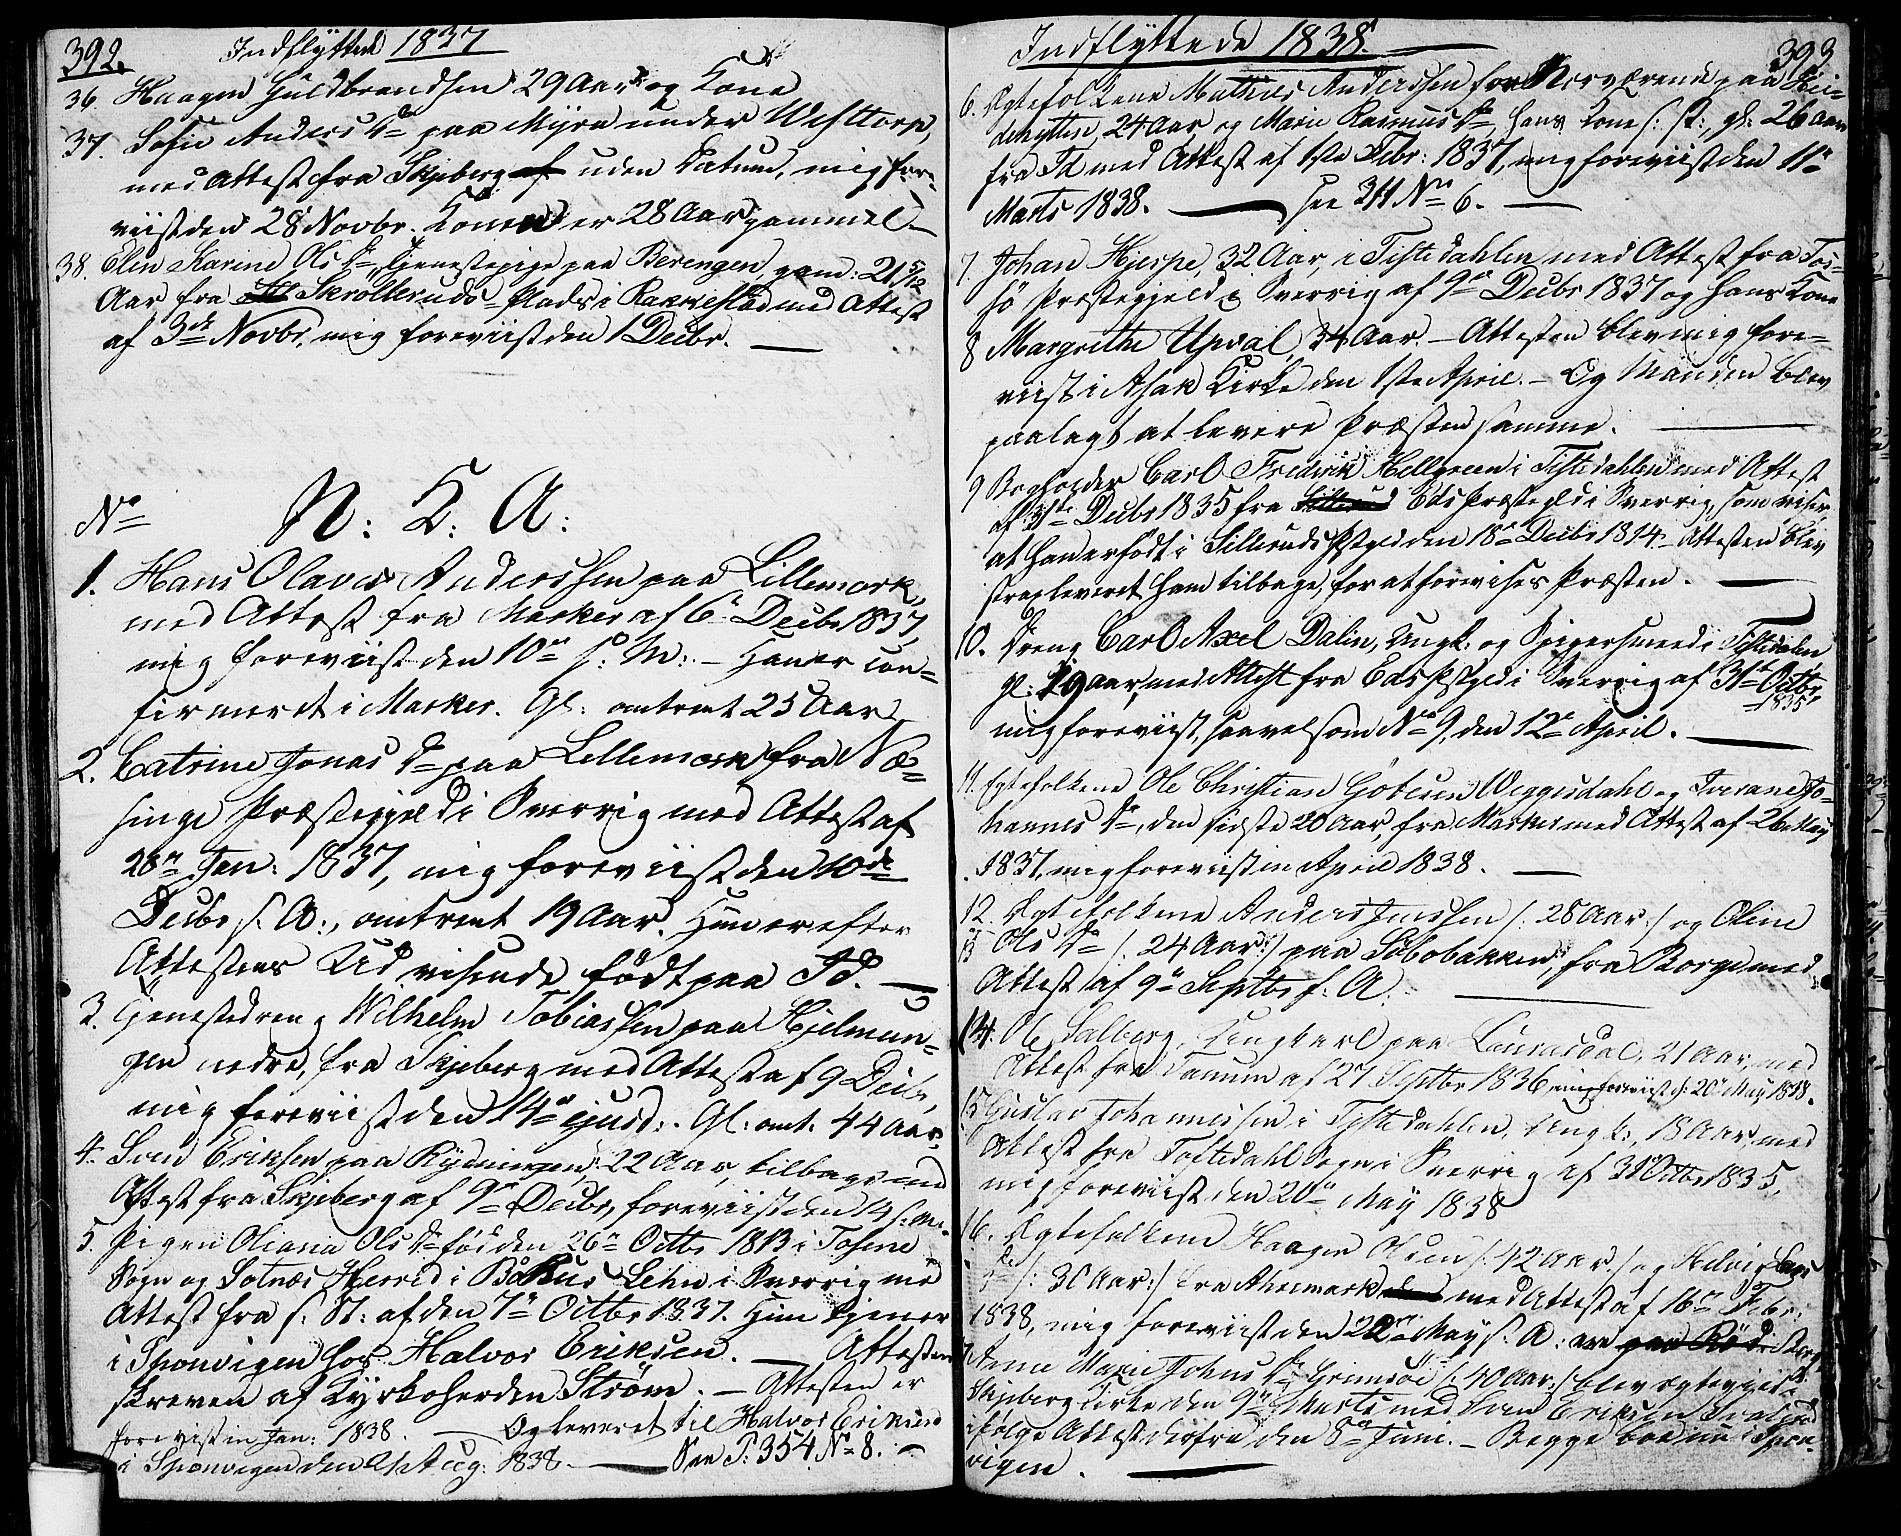 392. Indflyttede 1837
36. Haagen Guldbrandsen 29 Aar og Kone
37. Sofie Anders D. paa Myra under Westtorp,
med Attest fra Skjeberg af uden Datum, mig fore-
viist den 28 Novbr. Konen er 28 Aar gammel
38. Elen Karine Ols D. Tjenestepige paa Berengen, gam: 21 5/12
Aar fra Skrollerruds-Plads i Rakkestad med Attest
af 3de Novbr. mig foreviist den 1 Decbr.
No N: K: A:
1. Hans Olaves Anderssen paa Lillemork,
med Attest fra Marker af 6te Decbr 1837,
mig foreviist den 10de s: M: - Han er con-
firmeret i Marker. Gl: omtrent 25 Aar
2. Catrine Jonas D. paa Lellemork fra Næ-
singe Præstegjæld i Sverrig med Attest af
28de Jan: 1837, mig foreviist den 10de
Decbr s. A:, omtrent 19 Aar. Hun er efter
Attestens Udvisende født paa Id.
3. Tjenestedreng Wilhelm Tobiassen paa Hjelmun-
gen nedre, fra Skjeberg med Attest af 9 Decbr,
mig foreviist den 14de ejusd:. Gl: omt. 44 Aar.
4. Sven Eriksen paa Rydningen, 22 Aar, tilbage med
Attest fra Skjeberg af 9de Decbr, foreviist den 14 s: M.
5. Pigen Oliana Ols D. født den 26de Octbr 1813 i Tosene
Sogn og Sotnæs Herred i Båhus Lehn i Sverrig med
Attest fra s. St: af den 7de Octbr 1837. Hun tjener
i Sponvigen hos Halvor Eriksen. Attesten
skreven af Kyrkoherden Strøm. - Attesten er
forevist in Jan: 1838. Og leveret til Halvor Eriksen
i Sponvigen den 21 Aug: 1838. See P. 354 No 8.
Indflyttede 1838. 393
6. Ægtefolkene Mathies Anderssen for Nærværende paa
24 Aar og Marie Rasmus D. hans Kone s: St:, gl: 26 Aar
fra Id med Attest af 1ste Febr: 1837, mig foreviist den 11te
Marts 1838. See 341 No 6.
7. Johan Hjerpe, 32 Aar, i Tistedahlen med Attest fra Tos-
sø Præstegjeld i Sverrig af 9de Decbr 1837 og hans Kone
8 Margrethe Upval, 34 Aar. - Attesten blev mig fore-
viist i Asak Kirke den 1ste April. - Og Manden blev
paalagt at levere Præsten samme.
9 Bogholder Carl Fredrik Hellgreen i Tistedahlen med Attest
af 3die Decbr 1835 fra Eds Præstegjeld i Sverrig, som viser
at han er født i Silleruds Pstgjd den 18de Decbr 1814. Attesten blev
strax leveret ham tilbage, for at forevises Præsten.
10. Dreng Carl Axel Dalin, Ungk. og Spigersmed i Tistedalen
gl: 19 Aar, med Attest fra Eds Pstgjd i Sverrig af 31te Octbr
1835
mig foreviist, saavel som No 9, den 12te April.
11. Egtefolkene Ole Christian Gøtesen Weggesdahl og Joerane Jo-
hannes D., den sidste 20 Aar, fra Marker med Attest af 26 May
1837, mig foreviist in April 1838.
12. Ægtefolkene Anders Jenssen /: 28 Aar :/ og Oline
13 Ols D. /: 24 Aar :/ paa Søbobakken, fra Borge med
Attest af 9de Septbr s. A.
14. Ole Salberg, Ungkarl paa Laurasdal, 21 Aar, med
Attest fra Tanum af 27 Septbr 1836, mig foreviist d: 20 May 1838.
15 Gustav Johannessen i Tistedahlen, Ungk., 18 Aar, med
Attest fra Töftedahl Sogn i Sverrig af 31 Octbr 1835,
mig foreviist den 20de May 1838
16. Ægtefolkene Haagen Olsen /: 42 Aar :/ og Helvig Lars
D. /: 30 Aar :/ fra Aremark med Attest af 16de Febr:
1838, mig foreviist den 22de May s. A:
Anne Marie Johns D. Grimsøe /: 40 Aar :/ blev ægteviet i
Skjeberg Kirke den 9de Marts med Sven Eriksen
ifølge Attest derfra den 8de Juni. - Begge boe nu i Spon-
vigen.